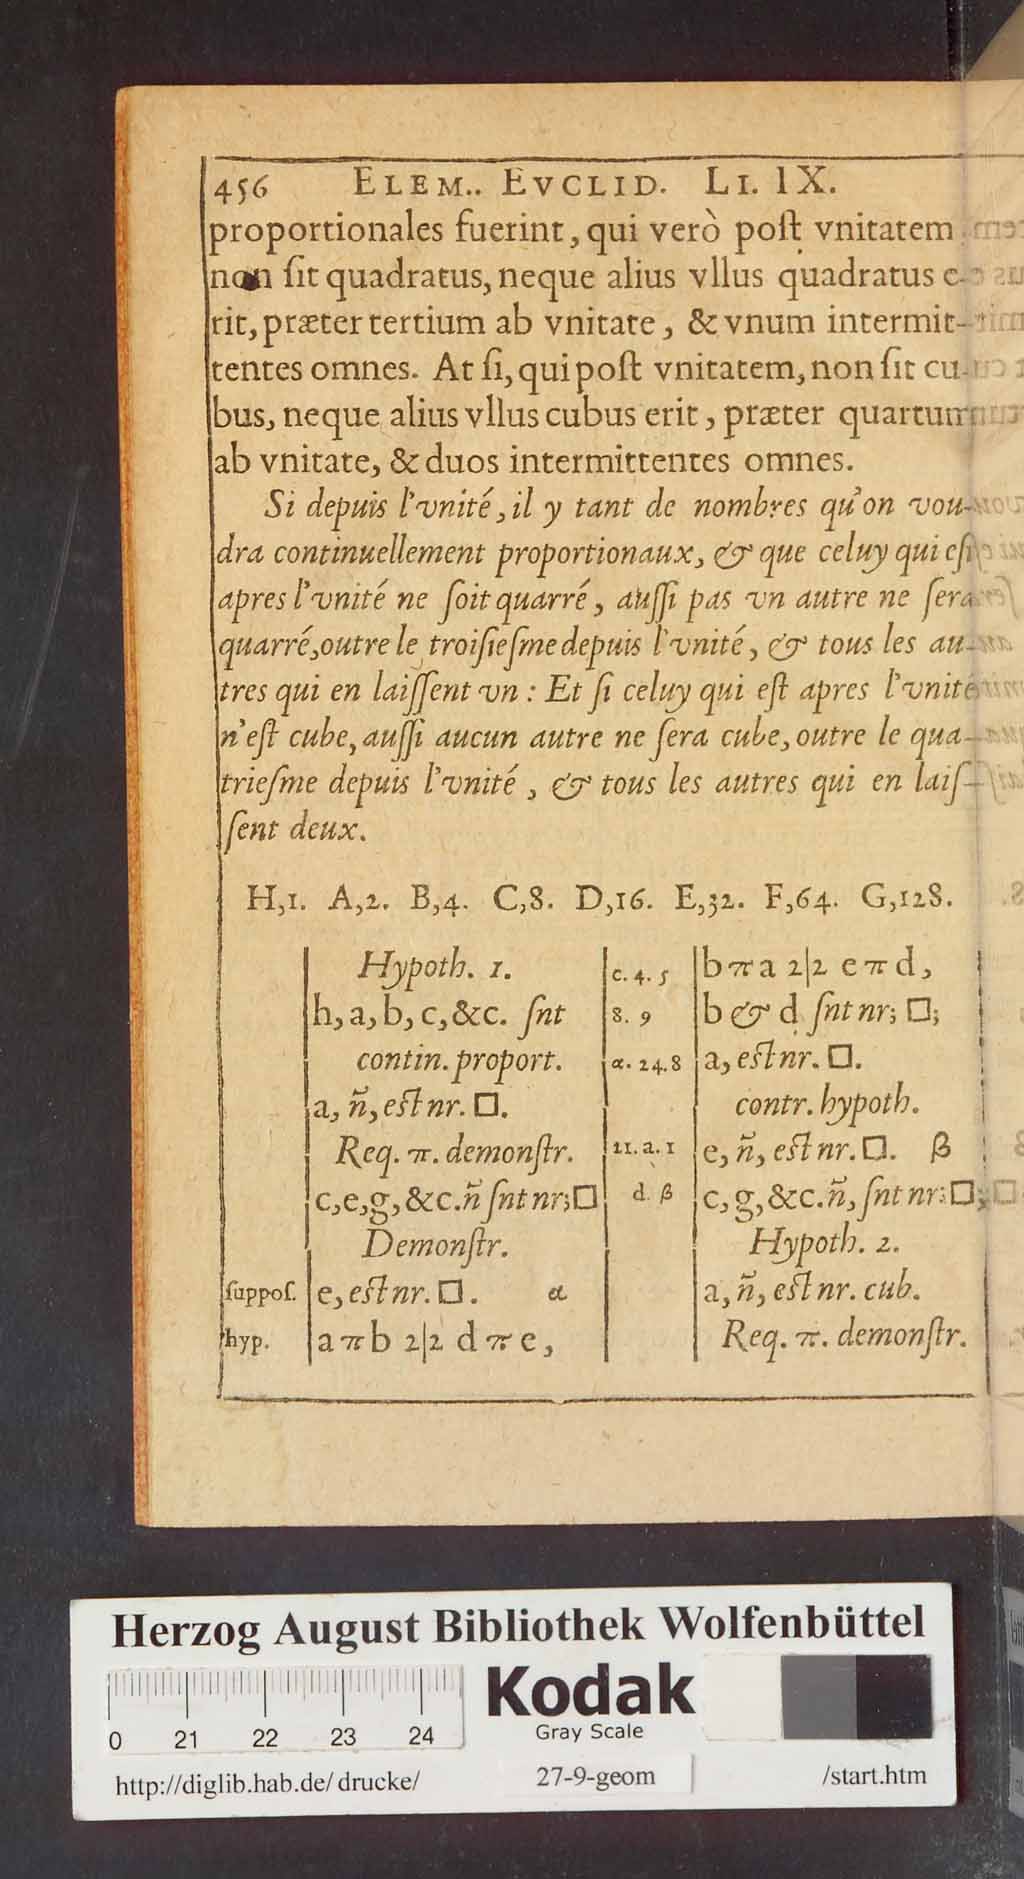 456 ELEM.. EVCLID. LI. IX.
proportionales fuerint, qui verò poſt vnitatem
non ſit quadratus, neque alius vllus quadratus e-
rit, præter tertium ab vnitate, & vnum intermit-
tentes omnes. At ſi, qui poſt vnitatem, non ſit cu-
bus, neque alius vllus cubus erit, præter quartum
ab vnitate, & duos intermittentes omnes.
Si depuis l'vnité, il y tant de nombres qu'on vou-
dra continuellement proportionaux, & que celuy qui eſt
apres l'vnité ne ſoit quarré, auſſi pas vn autre ne ſera
quarré, outre le troiſieſme depuis l'vnité, & tous les au-
tres qui en laiſſent vn : Et ſi celuy qui eſt apres l'vnité
n'eſt cube, auſſi aucun autre ne ſera cube, outre le qua-
trieſme depuis l'vnité, & tous les autres qui en laiſ-
ſent deux.
H,1. A,2. B,4. C,8. D,16. E,32. F,64. G,128.
Hypoth. 1.
h, a, b, c, &c. ſnt
contin. proport.
a, ñ, eſt nr. □.
Req. π. demonſtr.
c, e, g, &c. ñ ſnt nr; □
Demonſtr.
ſuppoſ. e, eſt nr. □. α
hyp. a π b 2|2 d π e,
c. 4. 5 b π a 2|2 e π d,
8. 9 b & d ſnt nr; □;
α. 24. 8 a, eſt nr. □.
contr. hypoth.
21. a. 1 e, ñ, eſt nr. □. β
d. β c, g, &c. ñ, ſnt nr: □;
Hypoth. 2.
a, ñ, eſt nr. cub.
Req. π. demonſtr.
Herzog August Bibliothek Wolfenbüttel
Kodak
Gray Scale
0 21 22 23 24
http://diglib.hab.de/drucke/ 27-9-geom /start.htm